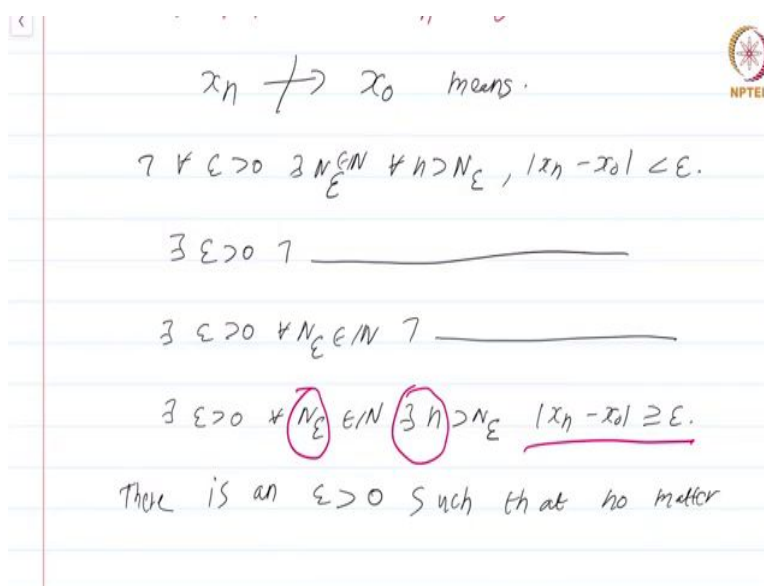 x_n ↛ x_0 means.
NPTEL
¬ ∀ ε>0 ∃ N_ε∈ℕ ∀ n>N_ε, |x_n - x_0| < ε.
∃ ε>0 ¬
∃ ε>0 ∀ N_ε ∈ ℕ ¬
∃ ε>0 ∀ N_ε ∈ ℕ ∃ n > N_ε |x_n - x_0| ≥ ε.
There is an ε>0 such that no matter